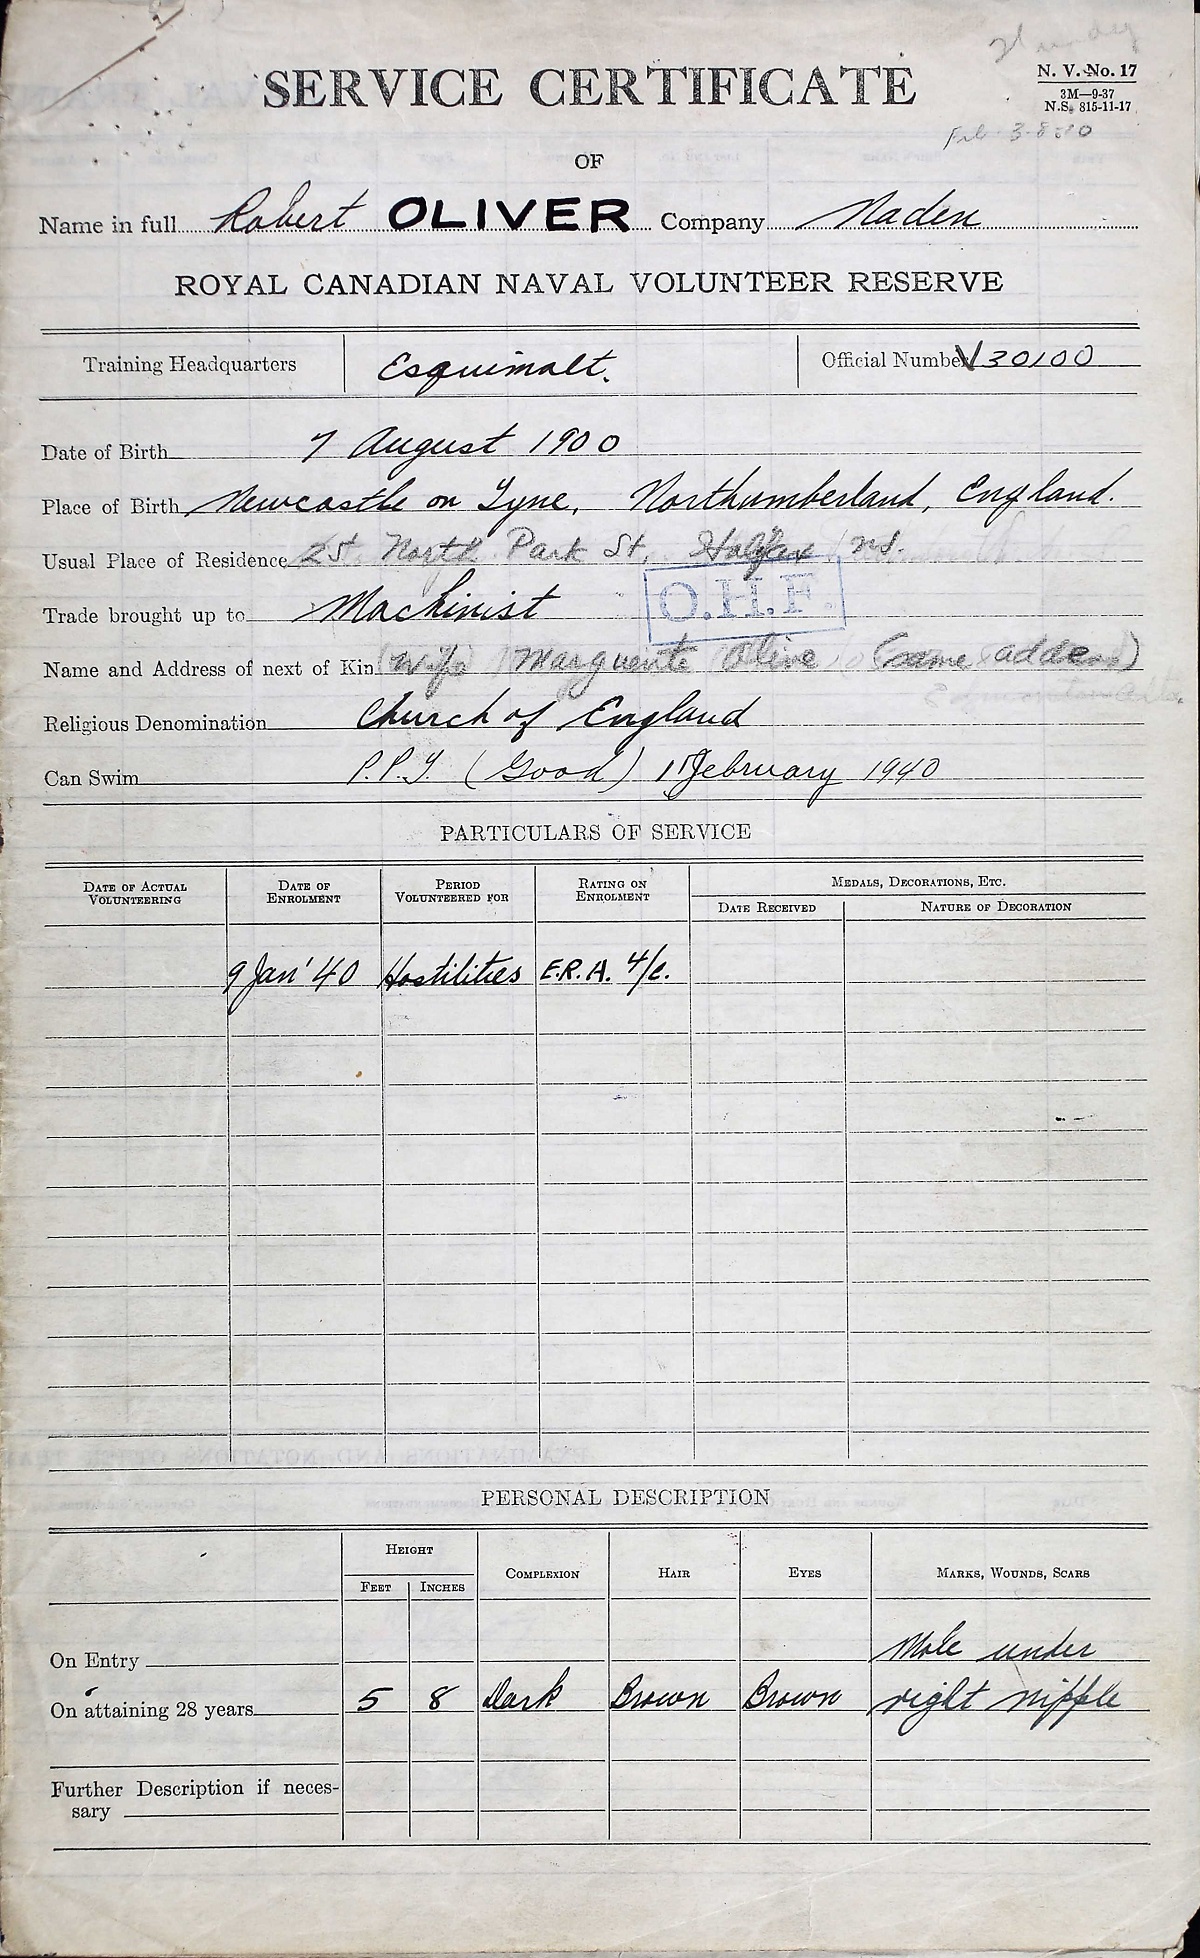 SERVICE CERTIFICATE
N. V. No. 17
3M—9-37
N.S. 815-11-17
OF
Name in full Robert OLIVER Company Naden
ROYAL CANADIAN NAVAL VOLUNTEER RESERVE
Training Headquarters Esquimalt. Official Number V30100
Date of Birth 7 August 1900
Place of Birth Newcastle on Tyne, Northumberland, England.
Usual Place of Residence 25 North Park St, Halifax NS.
O.H.F.
Trade brought up to Machinist
Name and Address of next of Kin (Wife) Marguerite Olive (same address)
Religious Denomination Church of England
Can Swim P.P.T. (Good) 1st February 1940
PARTICULARS OF SERVICE
DATE OF ACTUAL VOLUNTEERING DATE OF ENROLMENT PERIOD VOLUNTEERED FOR RATING ON ENROLMENT MEDALS, DECORATIONS, ETC.
DATE RECEIVED NATURE OF DECORATION
9 Jan' 40 Hostilities E.R.A. 4/c.
PERSONAL DESCRIPTION
HEIGHT COMPLEXION HAIR EYES MARKS, WOUNDS, SCARS
FEET INCHES
On Entry Mole under
On attaining 28 years 5 8 Dark Brown Brown right nipple
Further Description if neces-
sary